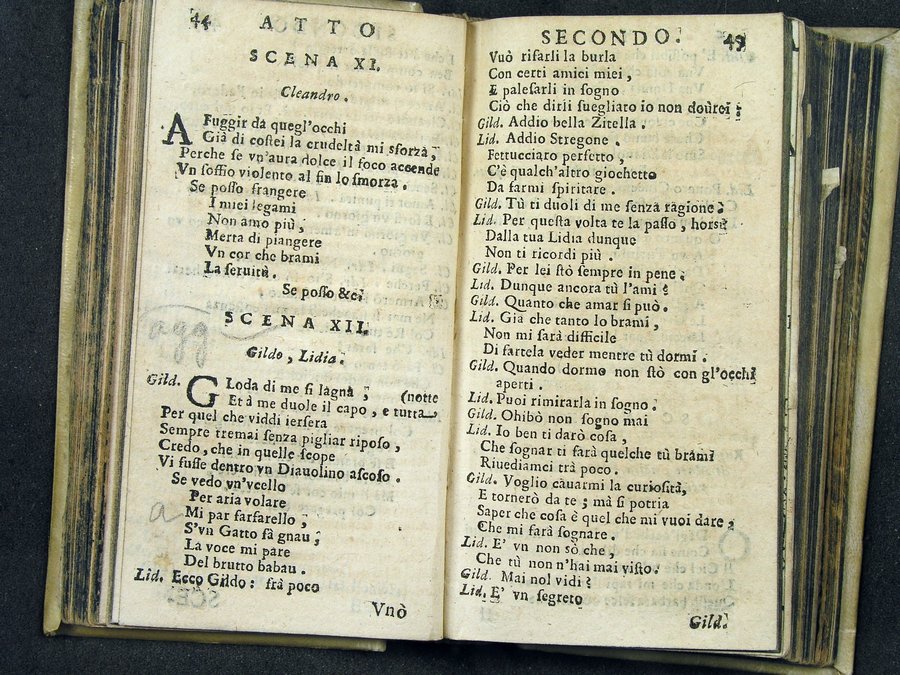 44 ATTO
SCENA XI.
Cleandro.
A Fuggir da quegl'occhi
Già di costei la crudeltà mi sforza,
Perche se vn'aura dolce il foco accende
Vn soffio violento al fin lo smorza.
Se posso frangere
I miei legami
Non amo più,
Merta di piangere
Vn cor che brami
La seruitù.
Se posso &c.
SCENA XII.
Gildo, Lidia.
Gild. GLoda di me si lagna; (notte
Et à me duole il capo, e tutta
Per quel che viddi iersera
Sempre tremai senza pigliar riposo,
Credo, che in quelle scope
Vi fusse dentro vn Diauolino ascoso.
Se vedo vn'vcello
Per aria volare
Mi par farfarello,
S'vn Gatto fà gnau;
La voce mi pare
Del brutto babau.
Lid. Ecco Gildo: frà poco
Vuò
SECONDO. 45
Vuò rifarli la burla
Con certi amici miei,
E palesarli in sogno
Ciò che dirli suegliato io non dourei;
Gild. Addio bella Zitella.
Lid. Addio Stregone.
Fettucciaro perfetto,
C'è qualch'altro giochetto
Da farmi spiritare.
Gild. Tù ti duoli di me senza ragione;
Lid. Per questa volta te la passo, horsù
Dalla tua Lidia dunque
Non ti ricordi più.
Gild. Per lei stò sempre in pene;
Lid. Dunque ancora tù l'ami?
Gild. Quanto che amar si può.
Lid. Già che tanto lo brami,
Non mi sarà difficile
Di fartela veder mentre tù dormi.
Gild. Quando dormo non stò con gl'occhi
aperti.
Lid. Puoi rimirarla in sogno.
Gild. Ohibò non sogno mai
Lid. Io ben ti darò cosa,
Che sognar ti farà quelche tù brami
Riuediamci trà poco.
Gild. Voglio cauarmi la curiosità,
E tornerò da te; mà si potria
Saper che cosa è quel che mi vuoi dare,
Che mi farà sognare.
Lid. E' vn non sò che,
Che tù non n'hai mai visto.
Gild. Mai nol vidi?
Lid. E' vn segreto
Gild.